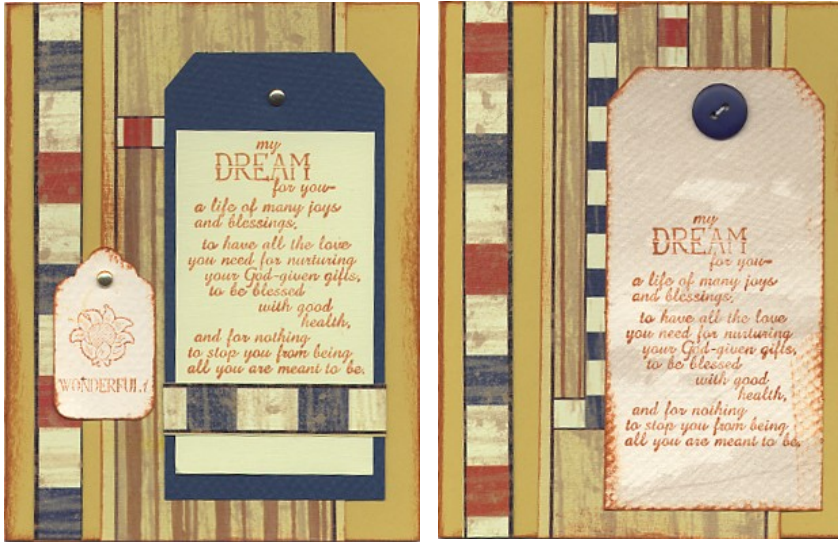 my
DREAM
for you–
a life of many joys
and blessings,
to have all the love
you need for nurturing
your God-given gifts,
to be blessed
with good
health,
and for nothing
to stop you from being
all you are meant to be.
WONDERFUL!
my
DREAM
for you–
a life of many joys
and blessings,
to have all the love
you need for nurturing
your God-given gifts,
to be blessed
with good
health,
and for nothing
to stop you from being
all you are meant to be.